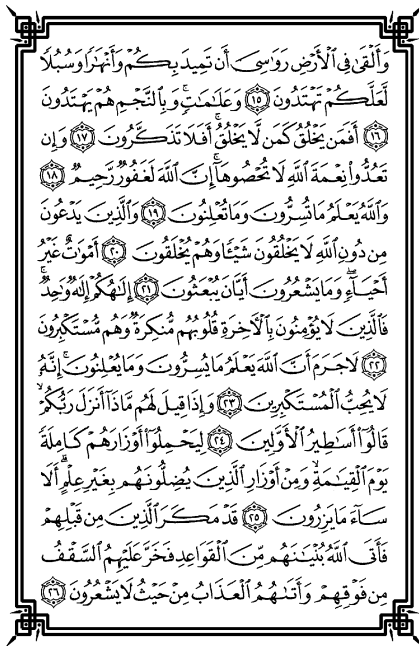 وَأَلْقَىٰ فِى ٱلْأَرْضِ رَوَٰسِىَ أَن تَمِيدَ بِكُمْ وَأَنْهَٰرًا وَسُبُلًا
لَّعَلَّكُمْ تَهْتَدُونَ ١٥ وَعَلَٰمَٰتٍ ۚ وَبِٱلنَّجْمِ هُمْ يَهْتَدُونَ
١٦ أَفَمَن يَخْلُقُ كَمَن لَّا يَخْلُقُ ۗ أَفَلَا تَذَكَّرُونَ ١٧ وَإِن
تَعُدُّوا۟ نِعْمَةَ ٱللَّهِ لَا تُحْصُوهَآ ۗ إِنَّ ٱللَّهَ لَغَفُورٌ رَّحِيمٌ ١٨
وَٱللَّهُ يَعْلَمُ مَا تُسِرُّونَ وَمَا تُعْلِنُونَ ١٩ وَٱلَّذِينَ يَدْعُونَ
مِن دُونِ ٱللَّهِ لَا يَخْلُقُونَ شَيْـًٔا وَهُمْ يُخْلَقُونَ ٢٠ أَمْوَٰتٌ غَيْرُ
أَحْيَآءٍ ۖ وَمَا يَشْعُرُونَ أَيَّانَ يُبْعَثُونَ ٢١ إِلَٰهُكُمْ إِلَٰهٌ وَٰحِدٌ ۚ
فَٱلَّذِينَ لَا يُؤْمِنُونَ بِٱلْءَاخِرَةِ قُلُوبُهُم مُّنكِرَةٌ وَهُم مُّسْتَكْبِرُونَ
٢٢ لَا جَرَمَ أَنَّ ٱللَّهَ يَعْلَمُ مَا يُسِرُّونَ وَمَا يُعْلِنُونَ ۚ إِنَّهُۥ
لَا يُحِبُّ ٱلْمُسْتَكْبِرِينَ ٢٣ وَإِذَا قِيلَ لَهُم مَّاذَآ أَنزَلَ رَبُّكُمْ ۙ
قَالُوٓا۟ أَسَٰطِيرُ ٱلْأَوَّلِينَ ٢٤ لِيَحْمِلُوٓا۟ أَوْزَارَهُمْ كَامِلَةً
يَوْمَ ٱلْقِيَٰمَةِ ۙ وَمِنْ أَوْزَارِ ٱلَّذِينَ يُضِلُّونَهُم بِغَيْرِ عِلْمٍ ۗ أَلَا
سَآءَ مَا يَزِرُونَ ٢٥ قَدْ مَكَرَ ٱلَّذِينَ مِن قَبْلِهِمْ
فَأَتَى ٱللَّهُ بُنْيَٰنَهُم مِّنَ ٱلْقَوَاعِدِ فَخَرَّ عَلَيْهِمُ ٱلسَّقْفُ
مِن فَوْقِهِمْ وَأَتَىٰهُمُ ٱلْعَذَابُ مِنْ حَيْثُ لَا يَشْعُرُونَ ٢٦